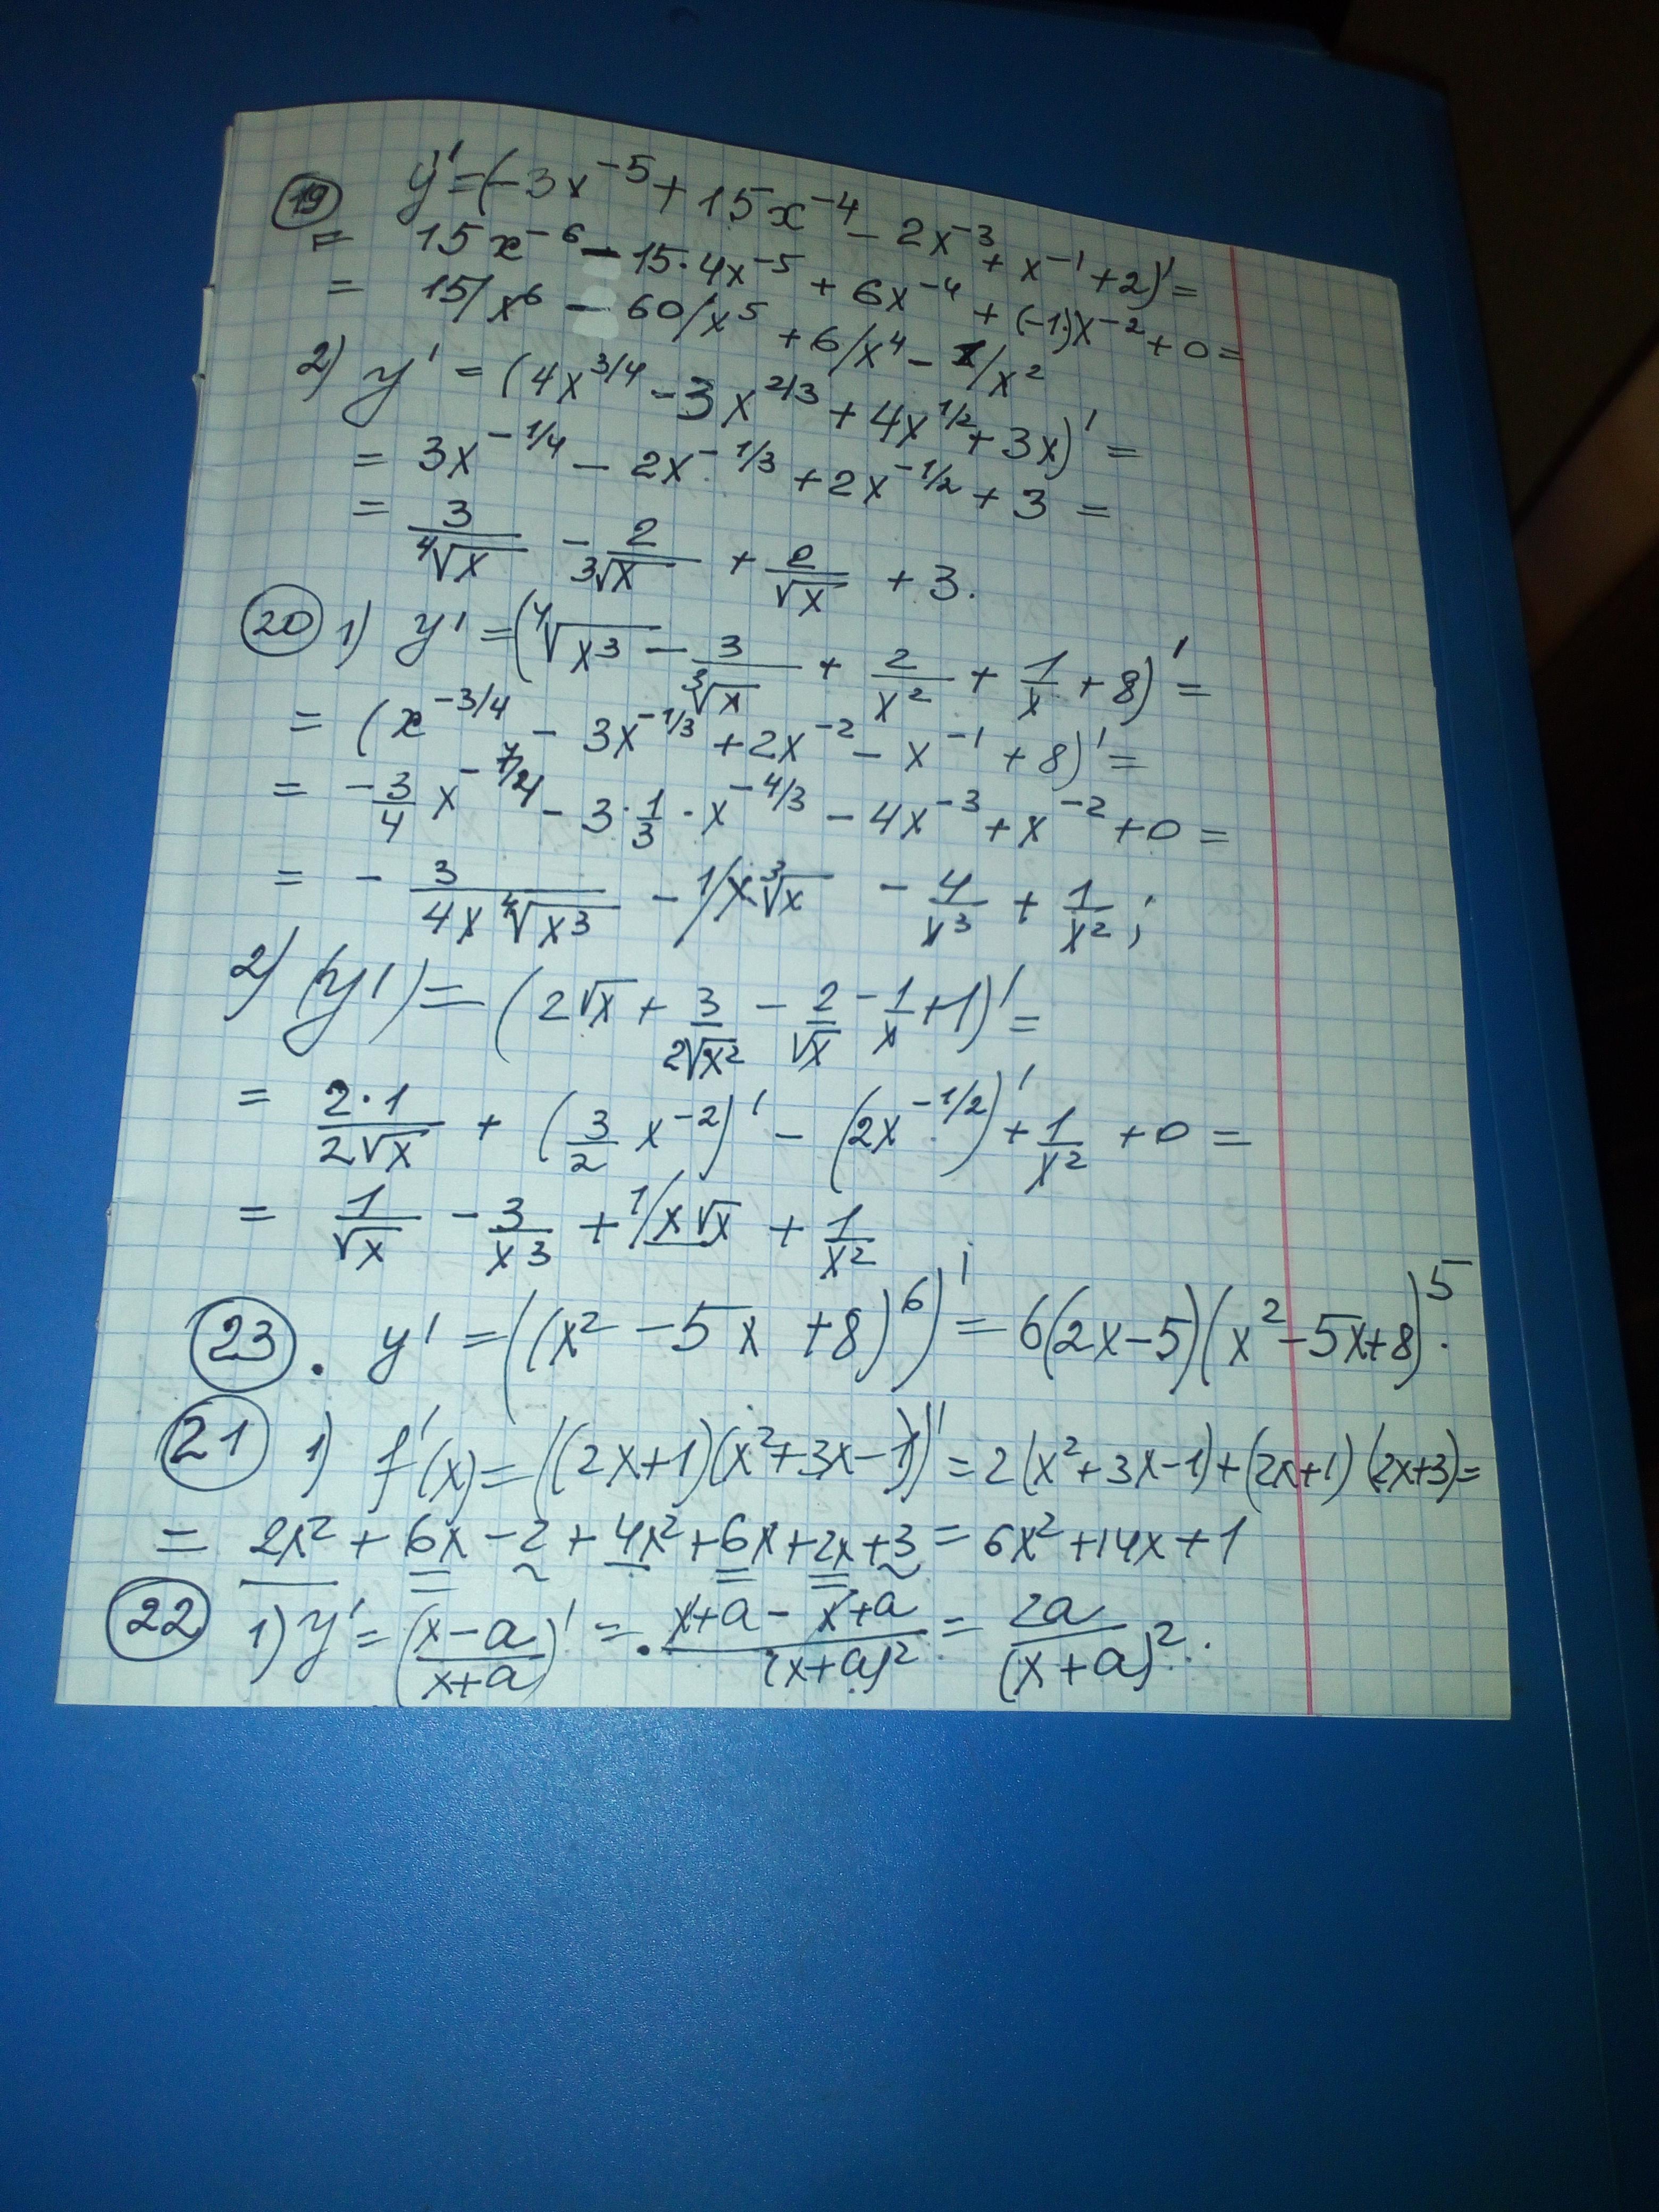 19 y' = (-3x⁻⁵ + 15x⁻⁴ - 2x⁻³ + x⁻¹ + 2)' =
= 15x⁻⁶ - 15·4x⁻⁵ + 6x⁻⁴ + (-1·)x⁻² + 0 =
= 15/x⁶ - 60/x⁵ + 6/x⁴ - 1/x²
2) y' = (4x^3/4 - 3x^2/3 + 4x^1/2 + 3x)' =
= 3x^-1/4 - 2x^-1/3 + 2x^-1/2 + 3 =
= 3/⁴√x - 2/³√x + 2/√x + 3.
20 1) y' = (⁴√x³ - 3/³√x + 2/x² + 1/x + 8)' =
= (x^-3/4 - 3x^-1/3 + 2x⁻² - x⁻¹ + 8)' =
= -3/4 x^-7/4 - 3·1/3·x^-4/3 - 4x⁻³ + x⁻² + 0 =
= - 3/4x⁴√x³ - 1/x³√x - 4/x³ + 1/x²;
2) (y') = (2√x + 3/2√x² - 2/√x - 1/x + 1)' =
= 2·1/2√x + (3/2 x⁻²)' - (2x^-1/2)' + 1/x² + 0 =
= 1/√x - 3/x³ + 1/x√x + 1/x²
23. y' = ((x² - 5x + 8)⁶)' = 6(2x-5)(x²-5x+8)⁵.
21 1) f'(x) = ((2x+1)(x²+3x-1))' = 2(x²+3x-1)+(2x+1)(2x+3) =
= 2x² + 6x - 2 + 4x² + 6x + 2x + 3 = 6x² + 14x + 1
22 1) y' = (x-a/x+a)' = x+a - x+a/(x+a)² = 2a/(x+a)².